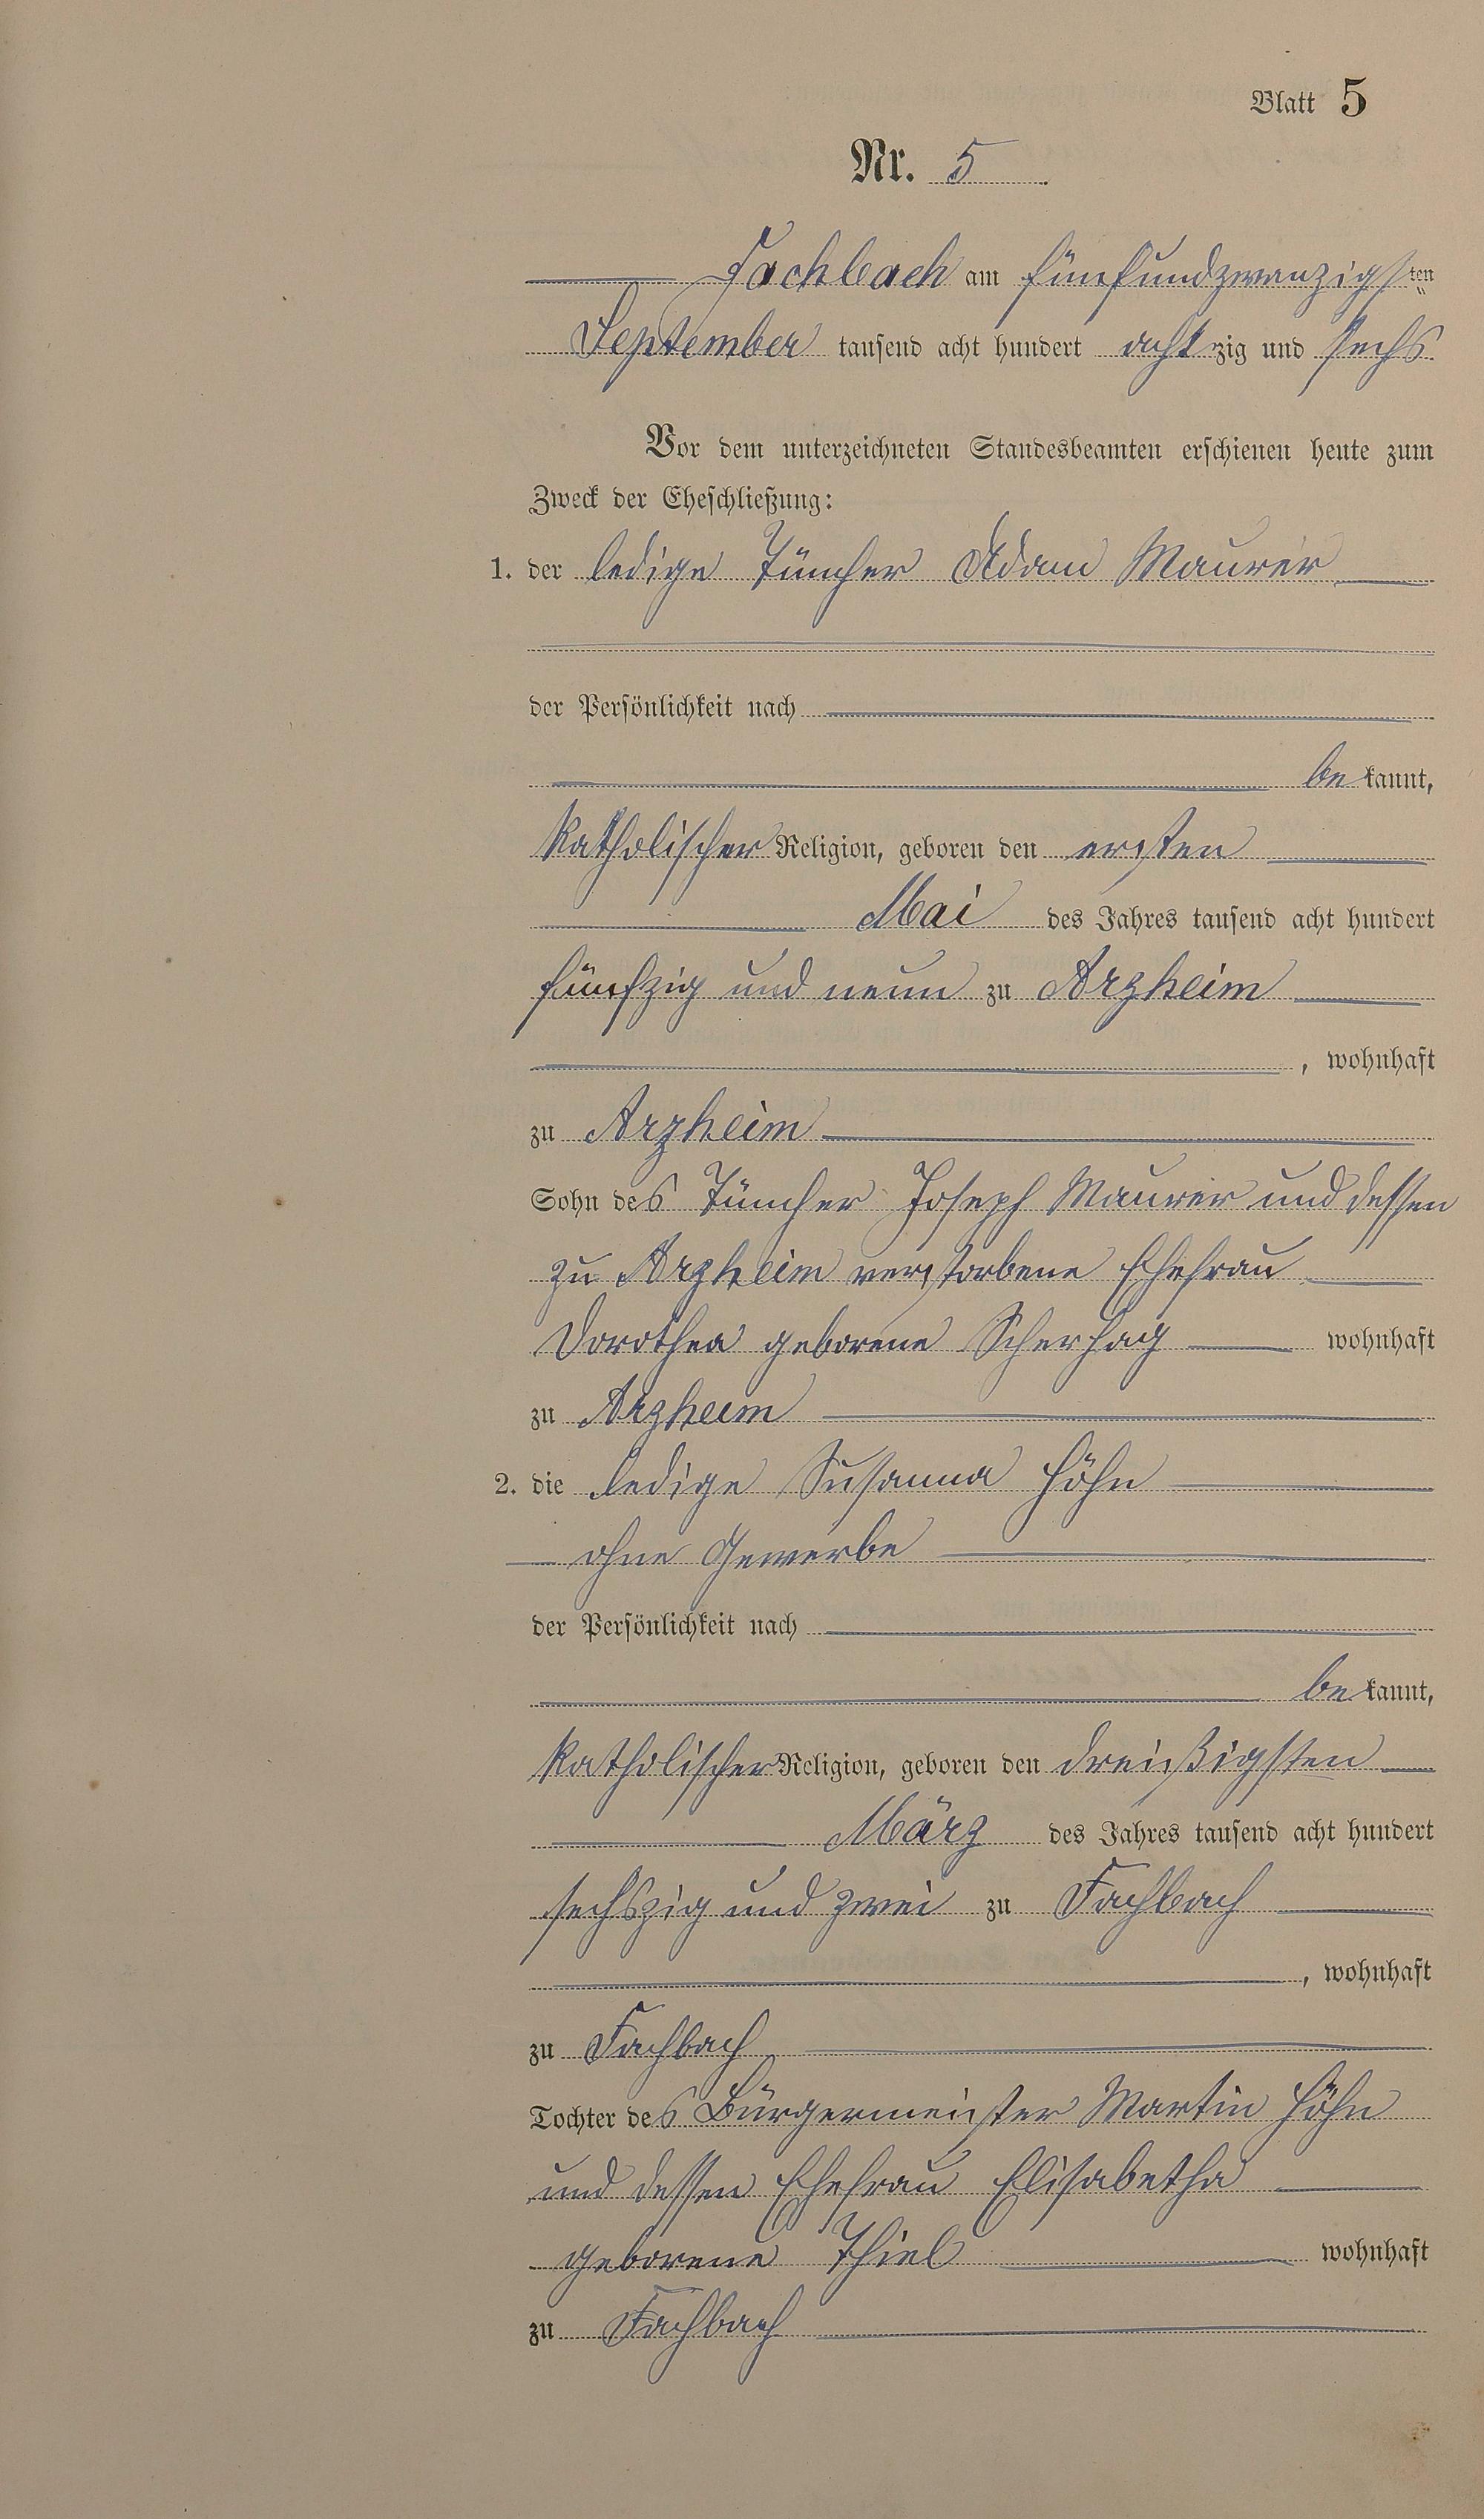 Blatt 5
Nr. 5
Fachbach am fünfundzwanzigsten
September tausend acht hundert achtzig und sechs
Vor dem unterzeichneten Standesbeamten erschienen heute zum
Zweck der Eheschließung:
1. der ledige Tüncher Adam Maurer
der Persönlichkeit nach
bekannt,
katholischer Religion, geboren den ersten
Mai des Jahres tausend acht hundert
fünfzig und neun zu Arzheim
, wohnhaft
zu Arzheim
Sohn des Tüncher Joseph Maurer und dessen
zu Arzheim verstorbene Ehefrau
Dorothea geborene Scherhag wohnhaft
zu Arzheim
2. die ledige Susanna Höhn
ohne Gewerbe
der Persönlichkeit nach
bekannt,
katholischer Religion, geboren den dreißigsten
März des Jahres tausend acht hundert
sechszig und zwei zu Fachbach
, wohnhaft
zu Fachbach
Tochter des Bürgermeister Martin Höhn
und dessen Ehefrau Elisabetha
geborene Thiel wohnhaft
zu Fachbach